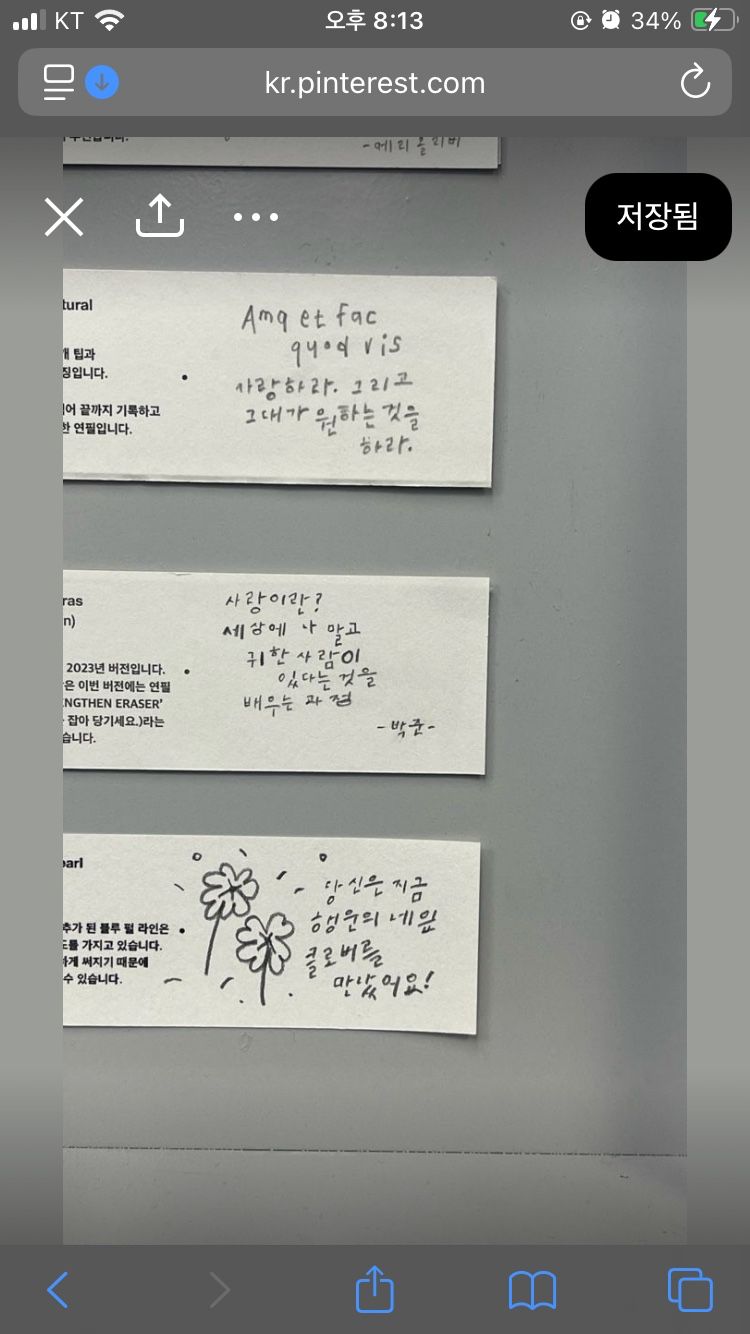 KT
오후 8:13
34%
kr.pinterest.com
-메리 올리버
저장됨
tural
개 팁과
징입니다.
어 끝까지 기록하고
한 연필입니다.
Ama et fac
quod vis
사랑하라. 그리고
그대가 원하는 것을
하라.
ras
n)
2023년 버전입니다.
은 이번 버전에는 연필
ENGTHEN ERASER'
잡아 당기세요.)라는
습니다.
사랑이란?
세상에 나 말고
귀한 사람이
있다는 것을
배우는 과정
-박준-
earl
추가 된 블루 펄 라인은
도를 가지고 있습니다.
하게 써지기 때문에
수 있습니다.
당신은 지금
행운의 네잎
클로버를
만났어요!